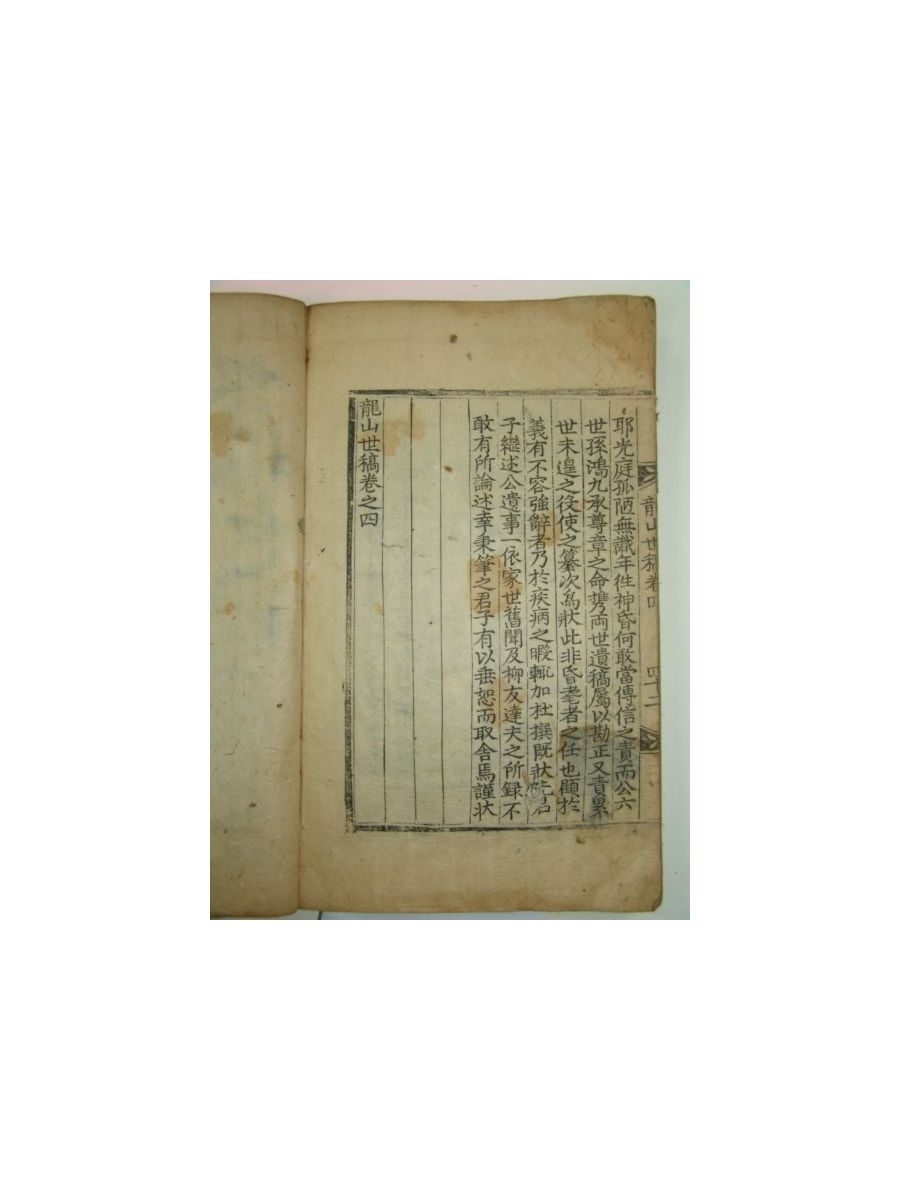 耶光庭孤陋無識年徃神昏何敢當傳信之責而公六
世孫鴻九承尊章之命携兩世遺稿屬以勘正又責累
世未遑之役使之纂次爲狀此非昏耄者之任也顧於
義有不容強辭者乃於疾病之暇輒加杜撰旣狀先君
子繼述公遺事一依家世舊聞及柳友達夫之所録不
敢有所論述幸秉筆之君子有以垂恕而取舍焉謹狀
龍山世稿卷之四
龍山世稿卷四
四十二